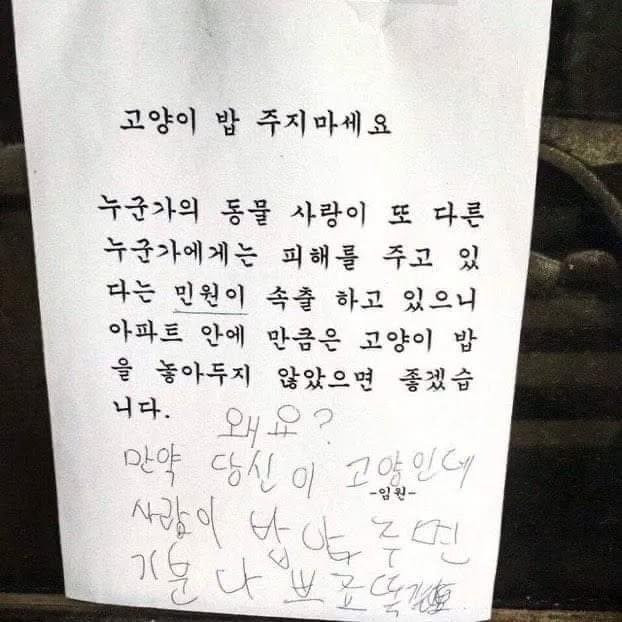 고양이 밥 주지마세요
누군가의 동물 사랑이 또 다른
누군가에게는 피해를 주고 있
다는 민원이 속출 하고 있으니
아파트 안에 만큼은 고양이 밥
을 놓아두지 않았으면 좋겠습
니다.
왜요?
만약 당신이 고양인데
-임원-
사람이 밥안 주면
기분 나쁘고